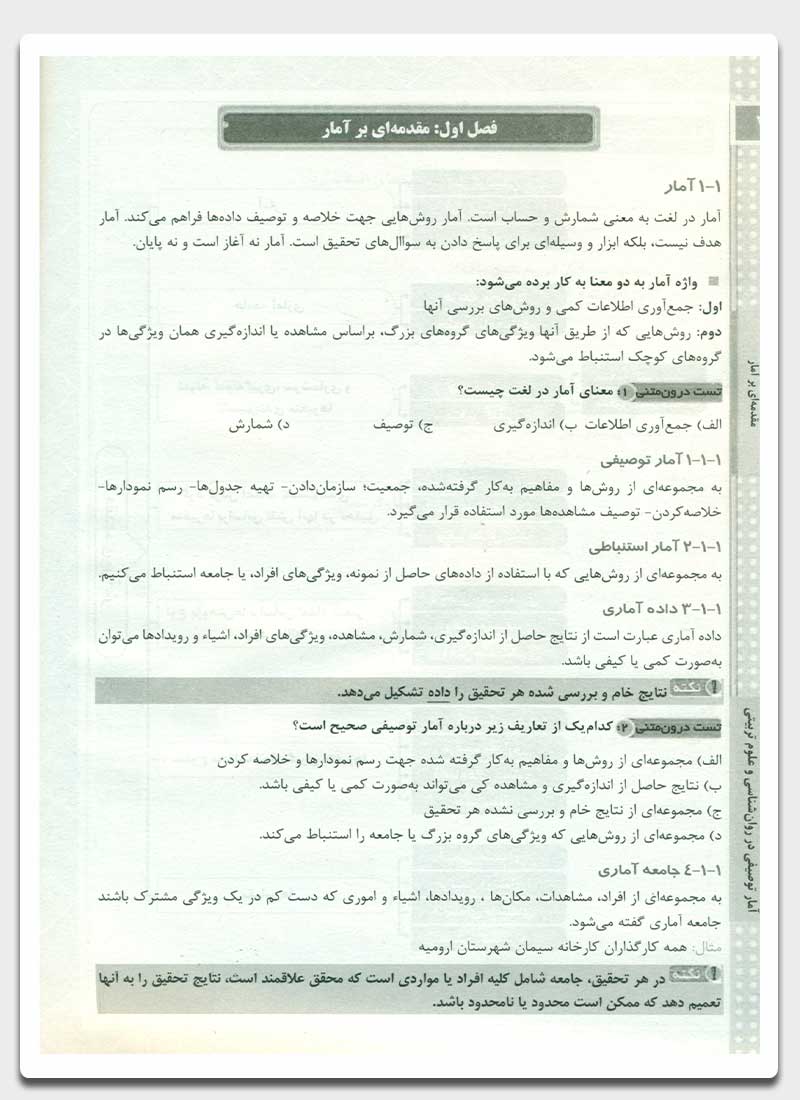 فصل اول: مقدمه‌ای بر آمار
۱-۱ آمار
آمار در لغت به معنی شمارش و حساب است. آمار روش‌هایی جهت خلاصه و توصیف داده‌ها فراهم می‌کند. آمار
هدف نیست، بلکه ابزار و وسیله‌ای برای پاسخ دادن به سواال‌های تحقیق است. آمار نه آغاز است و نه پایان.
واژه آمار به دو معنا به کار برده می‌شود:
اول: جمع‌آوری اطلاعات کمی و روش‌های بررسی آنها
دوم: روش‌هایی که از طریق آنها ویژگی‌های گروه‌های بزرگ، براساس مشاهده یا اندازه‌گیری همان ویژگی‌ها در
گروه‌های کوچک استنباط می‌شود.
تست درون‌متنی ۱: معنای آمار در لغت چیست؟
الف) جمع‌آوری اطلاعات ب) اندازه‌گیری ج) توصیف د) شمارش
۱-۱-۱ آمار توصیفی
به مجموعه‌ای از روش‌ها و مفاهیم به‌کار گرفته‌شده، جمعیت؛ سازمان‌دادن- تهیه جدول‌ها- رسم نمودارها-
خلاصه‌کردن- توصیف مشاهده‌ها مورد استفاده قرار می‌گیرد.
۲-۱-۱ آمار استنباطی
به مجموعه‌ای از روش‌هایی که با استفاده از داده‌های حاصل از نمونه، ویژگی‌های افراد، یا جامعه استنباط می‌کنیم.
۳-۱-۱ داده آماری
داده آماری عبارت است از نتایج حاصل از اندازه‌گیری، شمارش، مشاهده، ویژگی‌های افراد، اشیاء و رویدادها می‌توان
به‌صورت کمی یا کیفی باشد.
نکته نتایج خام و بررسی شده هر تحقیق را داده تشکیل می‌دهد.
تست درون‌متنی ۲: کدام‌یک از تعاریف زیر درباره آمار توصیفی صحیح است؟
الف) مجموعه‌ای از روش‌ها و مفاهیم به‌کار گرفته شده جهت رسم نمودارها و خلاصه کردن
ب) نتایج حاصل از اندازه‌گیری و مشاهده کی می‌تواند به‌صورت کمی یا کیفی باشد.
ج) مجموعه‌ای از نتایج خام و بررسی نشده هر تحقیق
د) مجموعه‌ای از روش‌هایی که ویژگی‌های گروه بزرگ یا جامعه را استنباط می‌کند.
۴-۱-۱ جامعه آماری
به مجموعه‌ای از افراد، مشاهدات، مکان‌ها ، رویدادها، اشیاء و اموری که دست کم در یک ویژگی مشترک باشند
جامعه آماری گفته می‌شود.
مثال: همه کارگذاران کارخانه سیمان شهرستان ارومیه
نکته در هر تحقیق، جامعه شامل کلیه افراد یا مواردی است که محقق علاقمند است، نتایج تحقیق را به آنها
تعمیم دهد که ممکن است محدود یا نامحدود باشد.
مقدمه‌ای بر آمار
آمار توصیفی در روان‌شناسی و علوم تربیتی